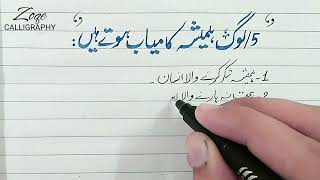 Zoqe
CALLIGRAPHY
5/لوگ ہمیشہ کامیاب ہوتے ہیں:
1- ہمیشہ شکر کرنے والا انسان۔
2- ہمت نہ ہارنے والا